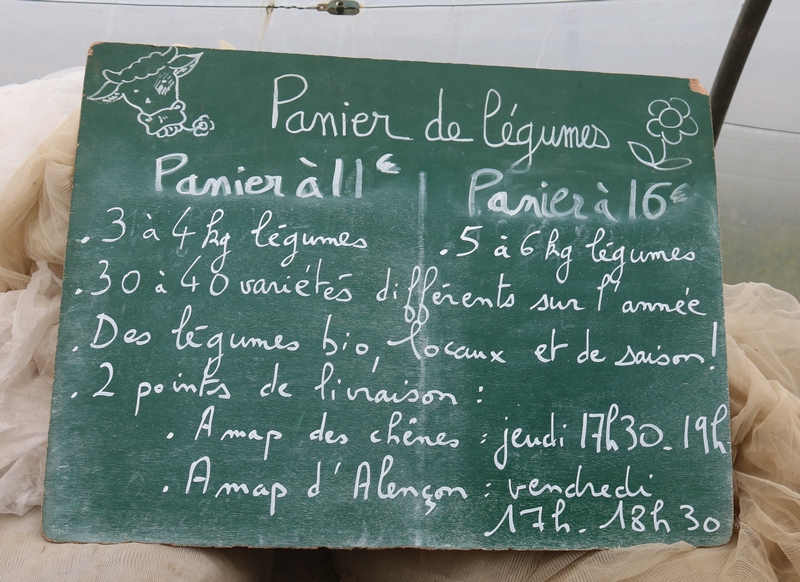 Panier de légumes
Panier à 11€
Panier à 16€
. 3 à 4 kg légumes
. 5 à 6 kg légumes
. 30 à 40 variétés différents sur l'année
. Des légumes bio, locaux et de saison !
. 2 points de livraison :
. Amap des chênes : jeudi 17h30 - 19h
. Amap d'Alençon : vendredi
17h - 18h30